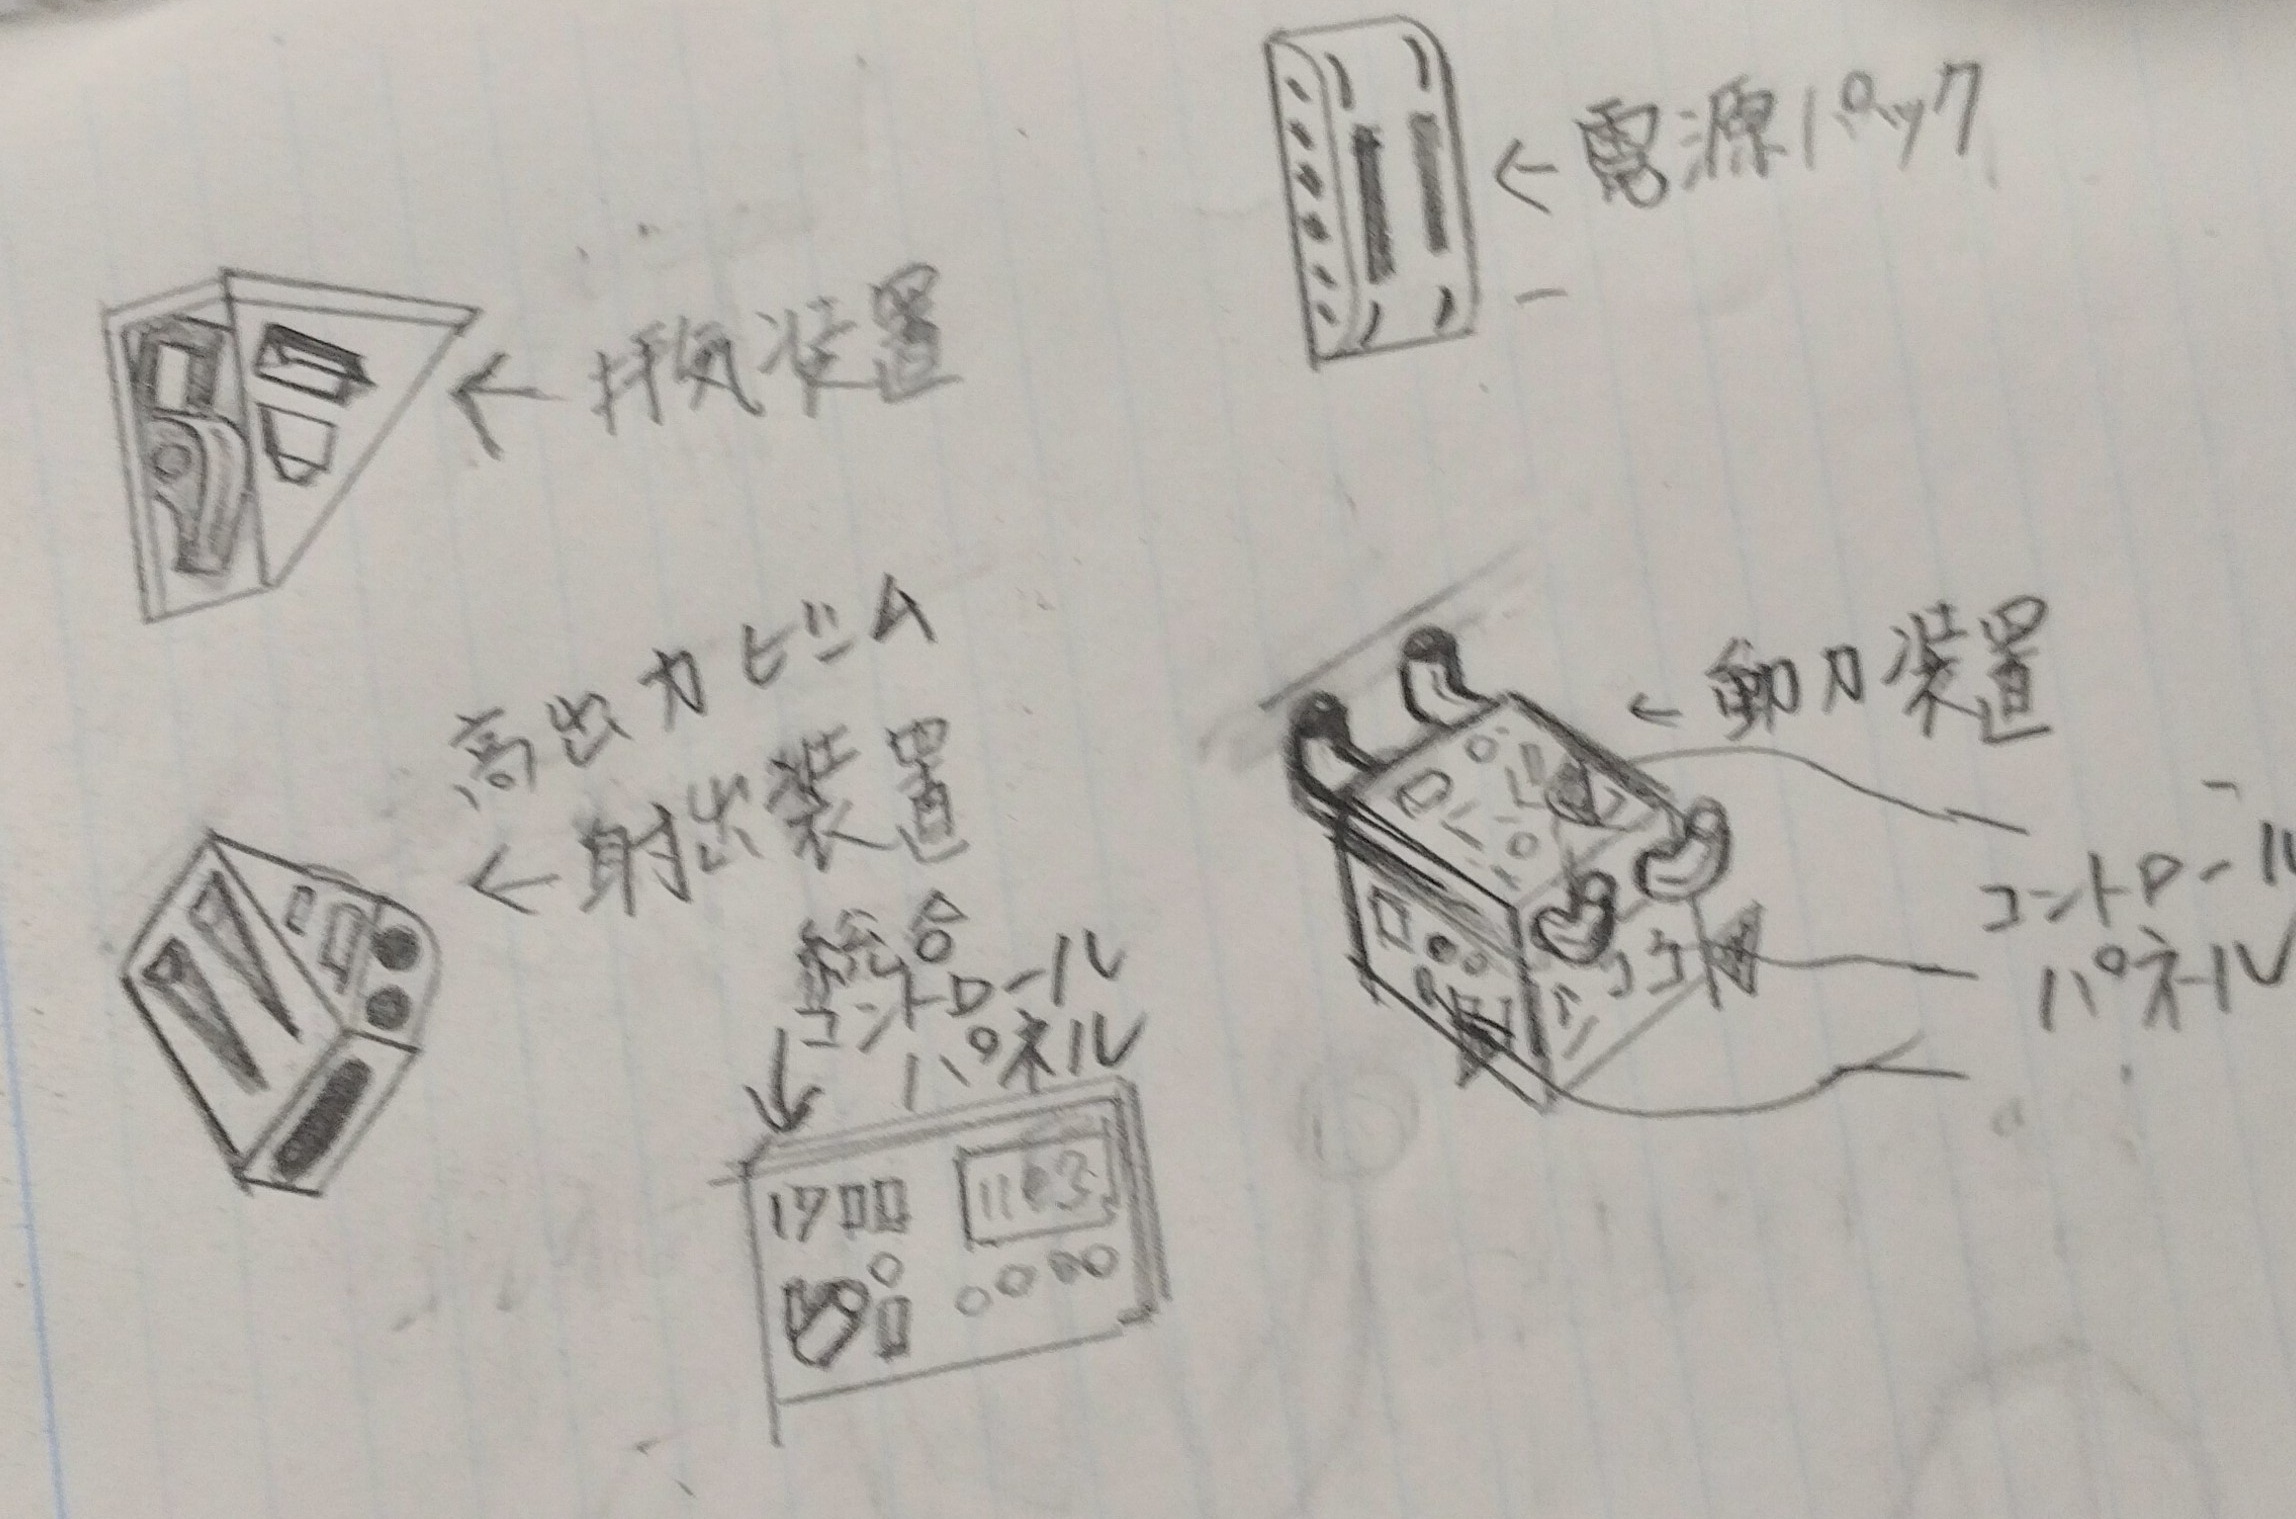 電源パック
排気装置
高出力ビーム
射出装置
動力装置
コントロール
パネル
統合
コントロール
パネル